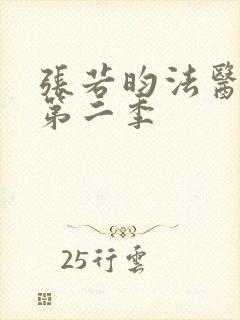 張若昀法醫
第二季
25行雲